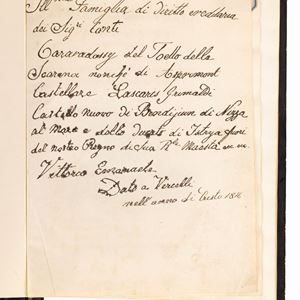 Famiglia di diritto ereditaria
dei Sigri Conti
Caravadossy del Toetto della
Scarena nonchè di Aspremont
Castellare Lascaris Grimaldi
Castello nuovo di Nizza
al Mare e dello Ducato di
del nostro Regno di Sua Rle Maestà
Vittorio Emanuele
Dato a Vercelli
nell'anno di Cristo